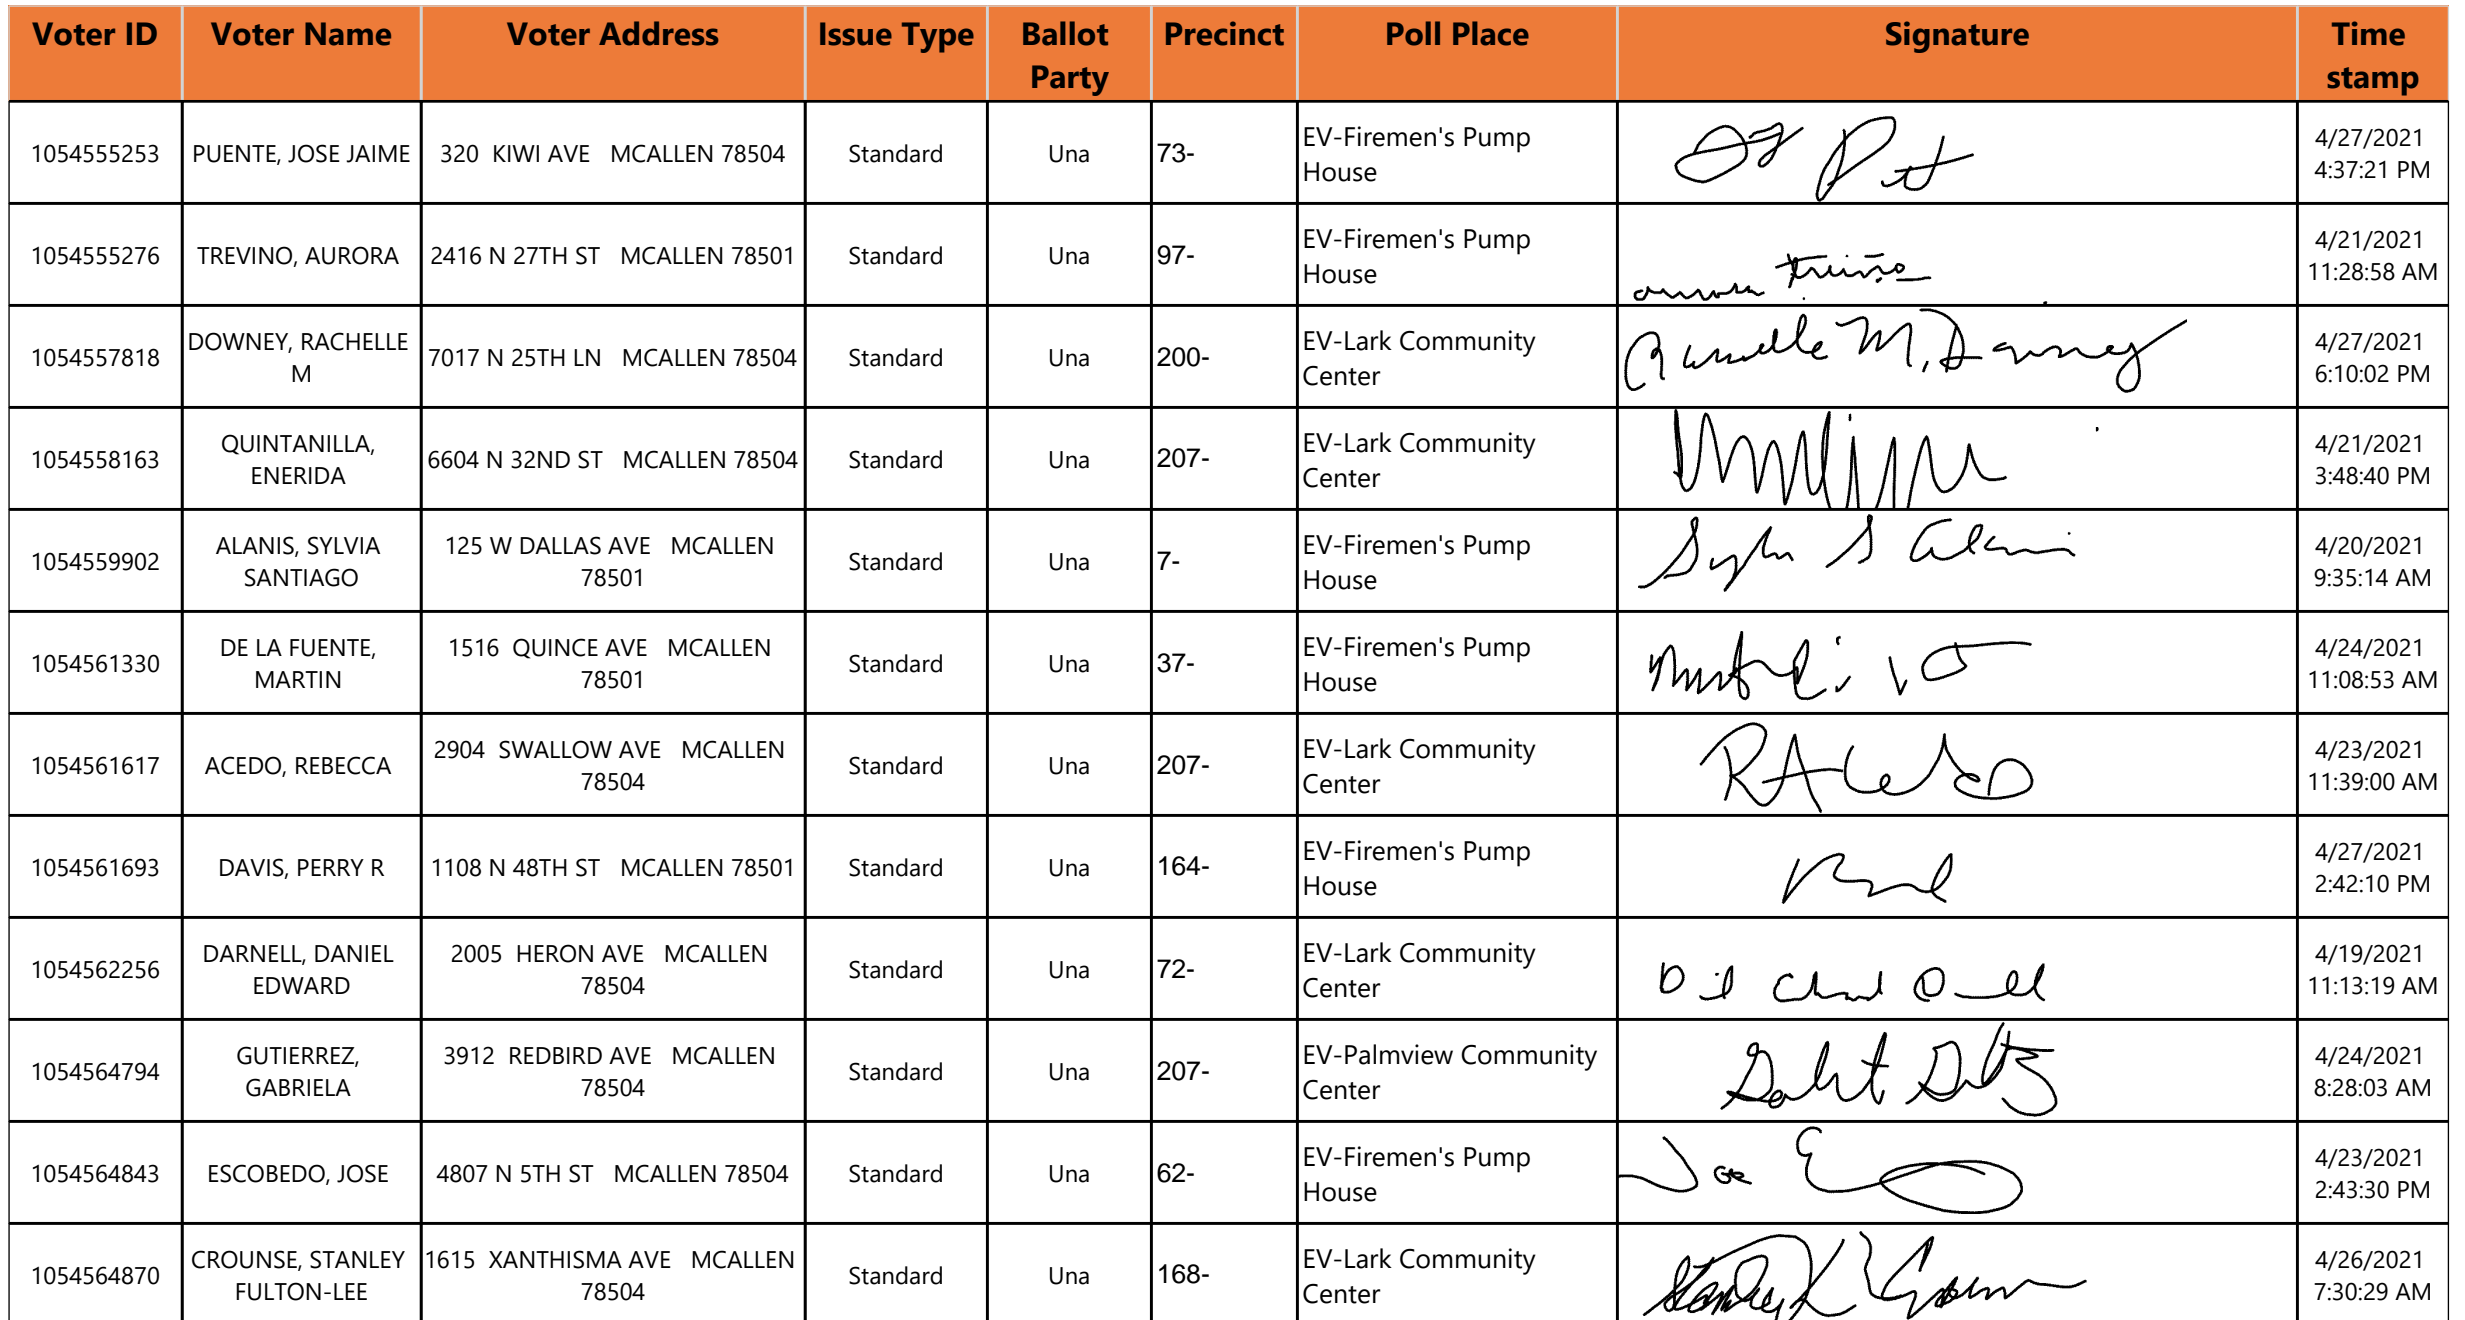 Voter ID Voter Name Voter Address Issue Type Ballot Party Precinct Poll Place Signature Time stamp
1054555253 PUENTE, JOSE JAIME 320 KIWI AVE MCALLEN 78504 Standard Una 73- EV-Firemen's Pump House 4/27/2021 4:37:21 PM
1054555276 TREVINO, AURORA 2416 N 27TH ST MCALLEN 78501 Standard Una 97- EV-Firemen's Pump House aurora Treviño 4/21/2021 11:28:58 AM
1054557818 DOWNEY, RACHELLE M 7017 N 25TH LN MCALLEN 78504 Standard Una 200- EV-Lark Community Center Rachelle M. Downey 4/27/2021 6:10:02 PM
1054558163 QUINTANILLA, ENERIDA 6604 N 32ND ST MCALLEN 78504 Standard Una 207- EV-Lark Community Center 4/21/2021 3:48:40 PM
1054559902 ALANIS, SYLVIA SANTIAGO 125 W DALLAS AVE MCALLEN 78501 Standard Una 7- EV-Firemen's Pump House Sylvia S Alanis 4/20/2021 9:35:14 AM
1054561330 DE LA FUENTE, MARTIN 1516 QUINCE AVE MCALLEN 78501 Standard Una 37- EV-Firemen's Pump House 4/24/2021 11:08:53 AM
1054561617 ACEDO, REBECCA 2904 SWALLOW AVE MCALLEN 78504 Standard Una 207- EV-Lark Community Center RAcedo 4/23/2021 11:39:00 AM
1054561693 DAVIS, PERRY R 1108 N 48TH ST MCALLEN 78501 Standard Una 164- EV-Firemen's Pump House 4/27/2021 2:42:10 PM
1054562256 DARNELL, DANIEL EDWARD 2005 HERON AVE MCALLEN 78504 Standard Una 72- EV-Lark Community Center 4/19/2021 11:13:19 AM
1054564794 GUTIERREZ, GABRIELA 3912 REDBIRD AVE MCALLEN 78504 Standard Una 207- EV-Palmview Community Center 4/24/2021 8:28:03 AM
1054564843 ESCOBEDO, JOSE 4807 N 5TH ST MCALLEN 78504 Standard Una 62- EV-Firemen's Pump House Joe E 4/23/2021 2:43:30 PM
1054564870 CROUNSE, STANLEY FULTON-LEE 1615 XANTHISMA AVE MCALLEN 78504 Standard Una 168- EV-Lark Community Center Stanley 4/26/2021 7:30:29 AM